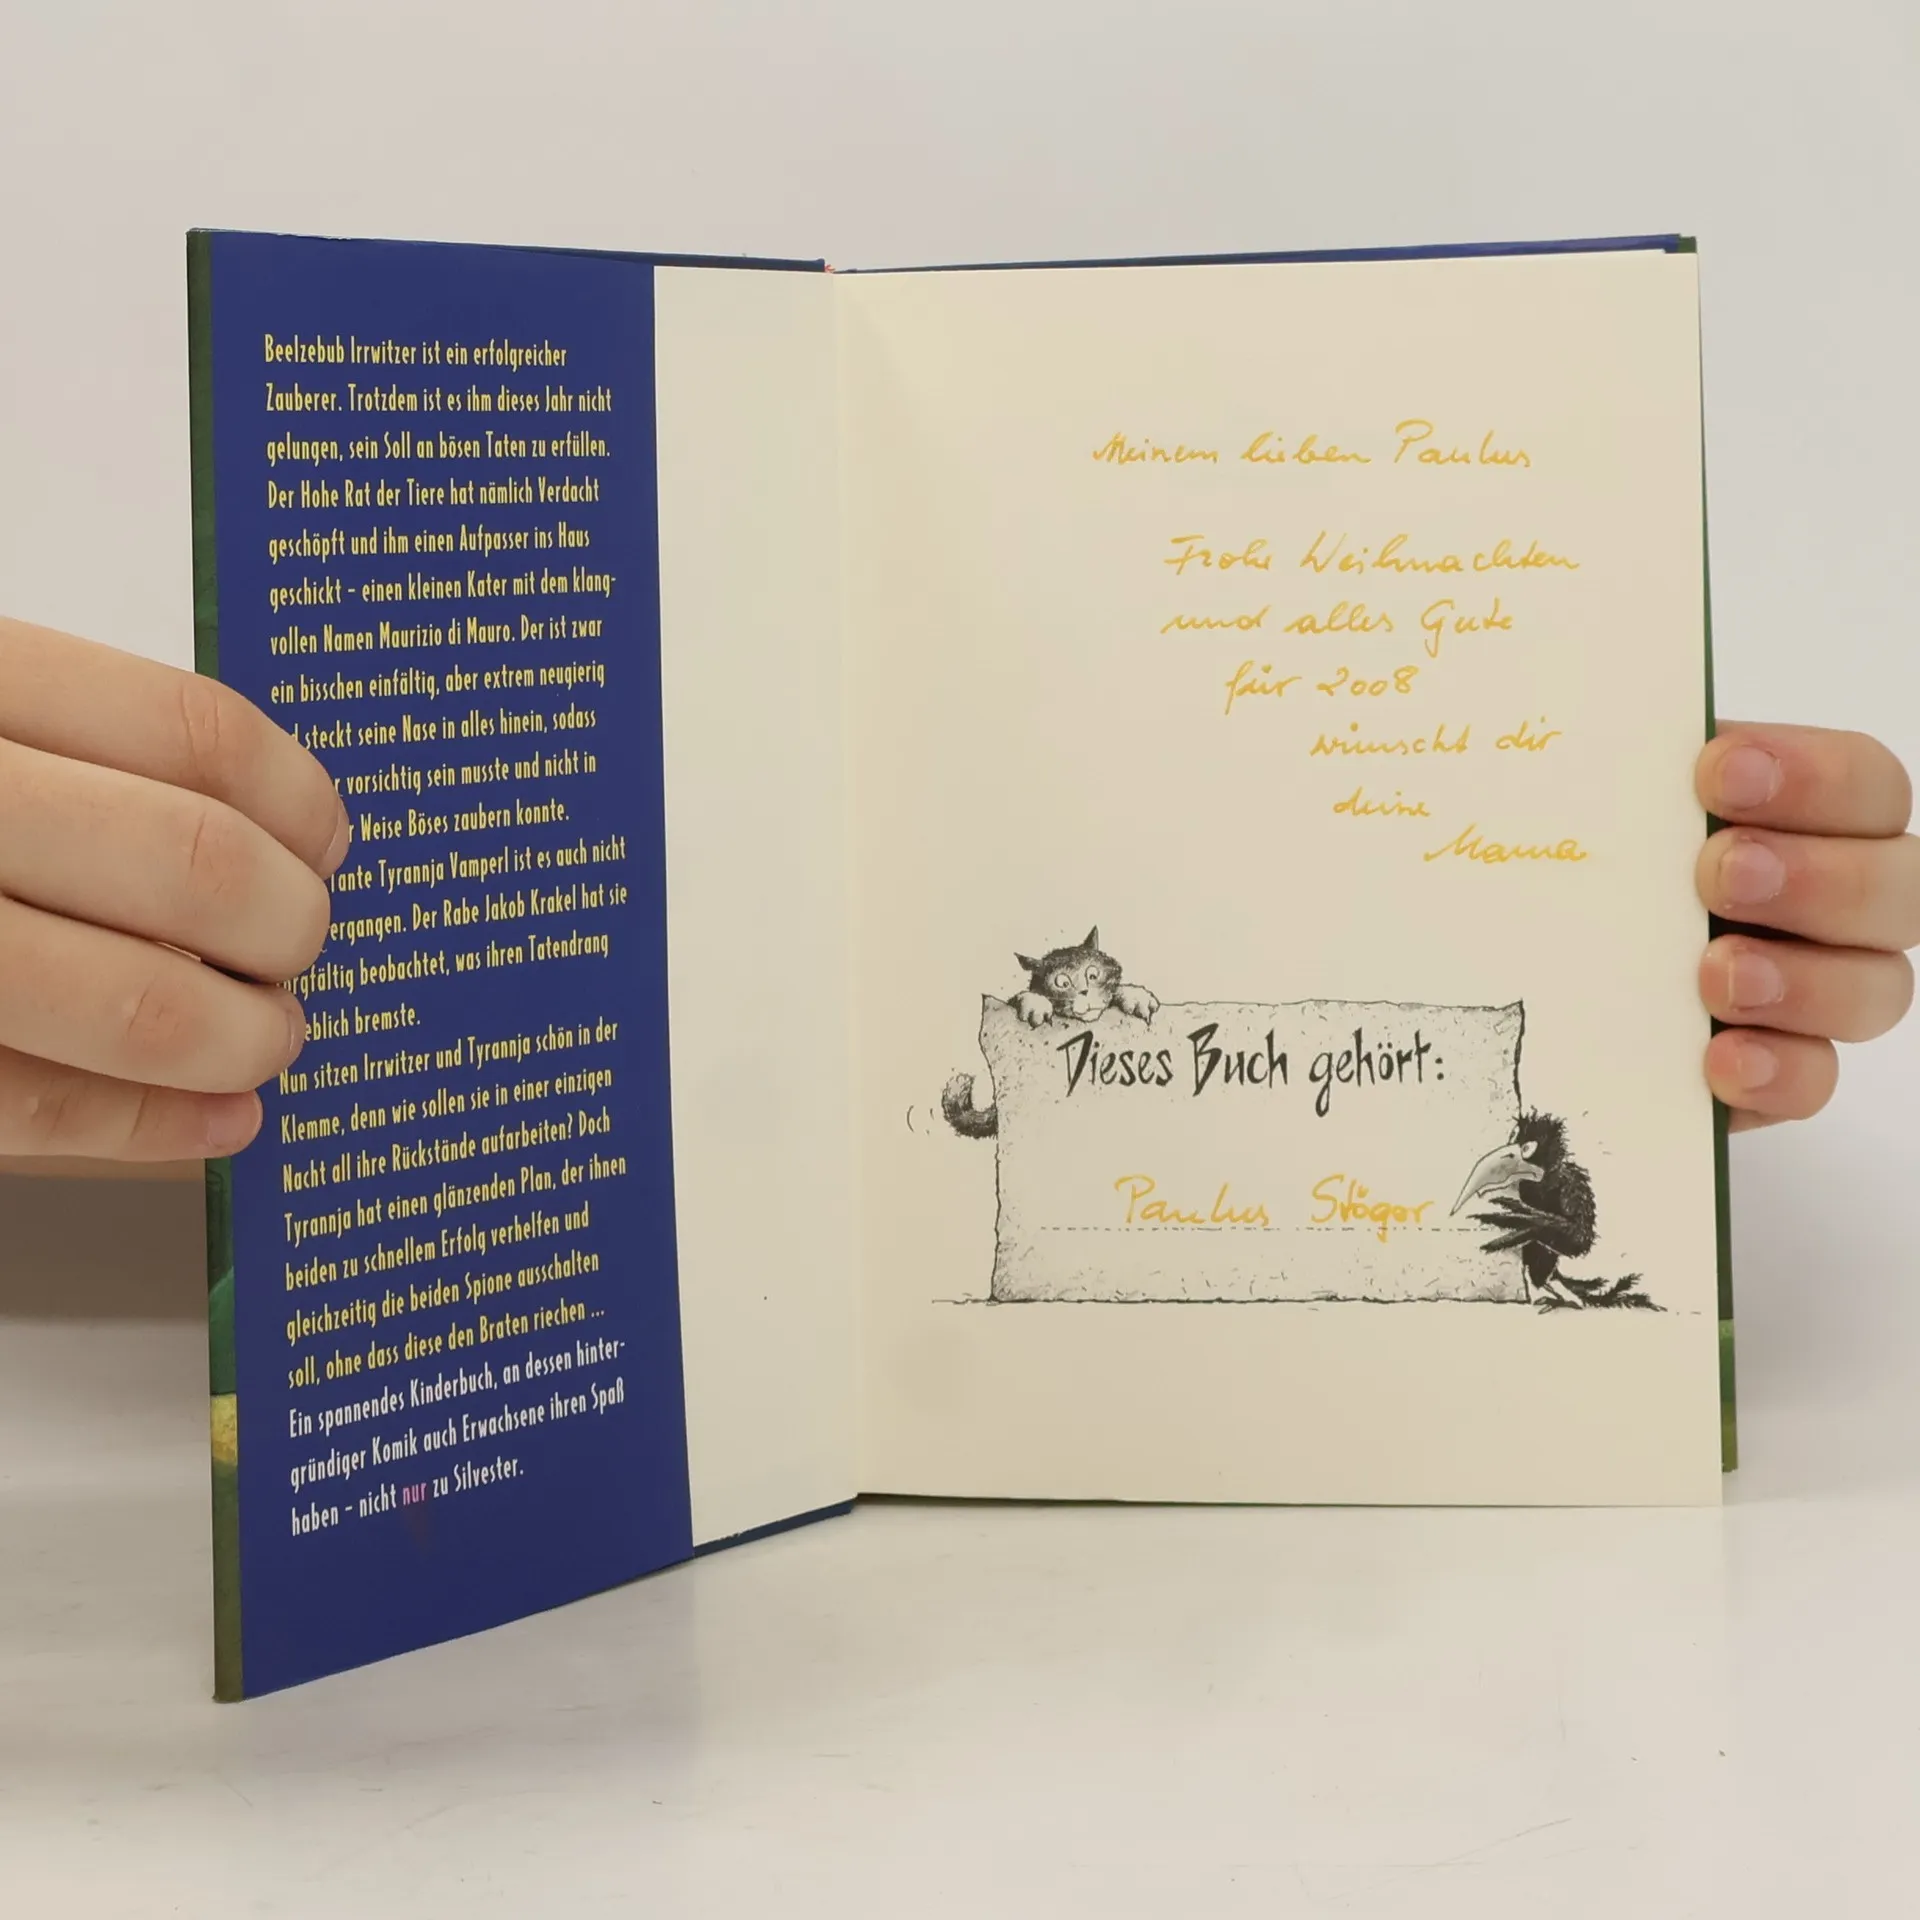 Beelzebub Irrwitzer ist ein erfolgreicher
Zauberer. Trotzdem ist es ihm dieses Jahr nicht
gelungen, sein Soll an bösen Taten zu erfüllen.
Der Hohe Rat der Tiere hat nämlich Verdacht
geschöpft und ihm einen Aufpasser ins Haus
geschickt – einen kleinen Kater mit dem klang-
vollen Namen Maurizio di Mauro. Der ist zwar
ein bisschen einfältig, aber extrem neugierig
steckt seine Nase in alles hinein, sodass
vorsichtig sein musste und nicht in
Weise Böses zaubern konnte.
Tante Tyrannja Vamperl ist es auch nicht
ergangen. Der Rabe Jakob Krakel hat sie
beobachtet, was ihren Tatendrang
bremste.
Nun sitzen Irrwitzer und Tyrannja schön in der
Klemme, denn wie sollen sie in einer einzigen
Nacht all ihre Rückstände aufarbeiten? Doch
Tyrannja hat einen glänzenden Plan, der ihnen
beiden zu schnellem Erfolg verhelfen und
gleichzeitig die beiden Spione ausschalten
soll, ohne dass diese den Braten riechen ...
Ein spannendes Kinderbuch, an dessen hinter-
gründiger Komik auch Erwachsene ihren Spaß
haben – nicht nur zu Silvester.
Meinem lieben Paulus
Frohe Weihnachten
und alles Gute
für 2008
wünscht dir
deine
Mama
Dieses Buch gehört:
Paulus Stöger